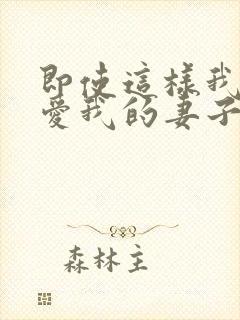 即使這樣我
愛我的妻子
森林主